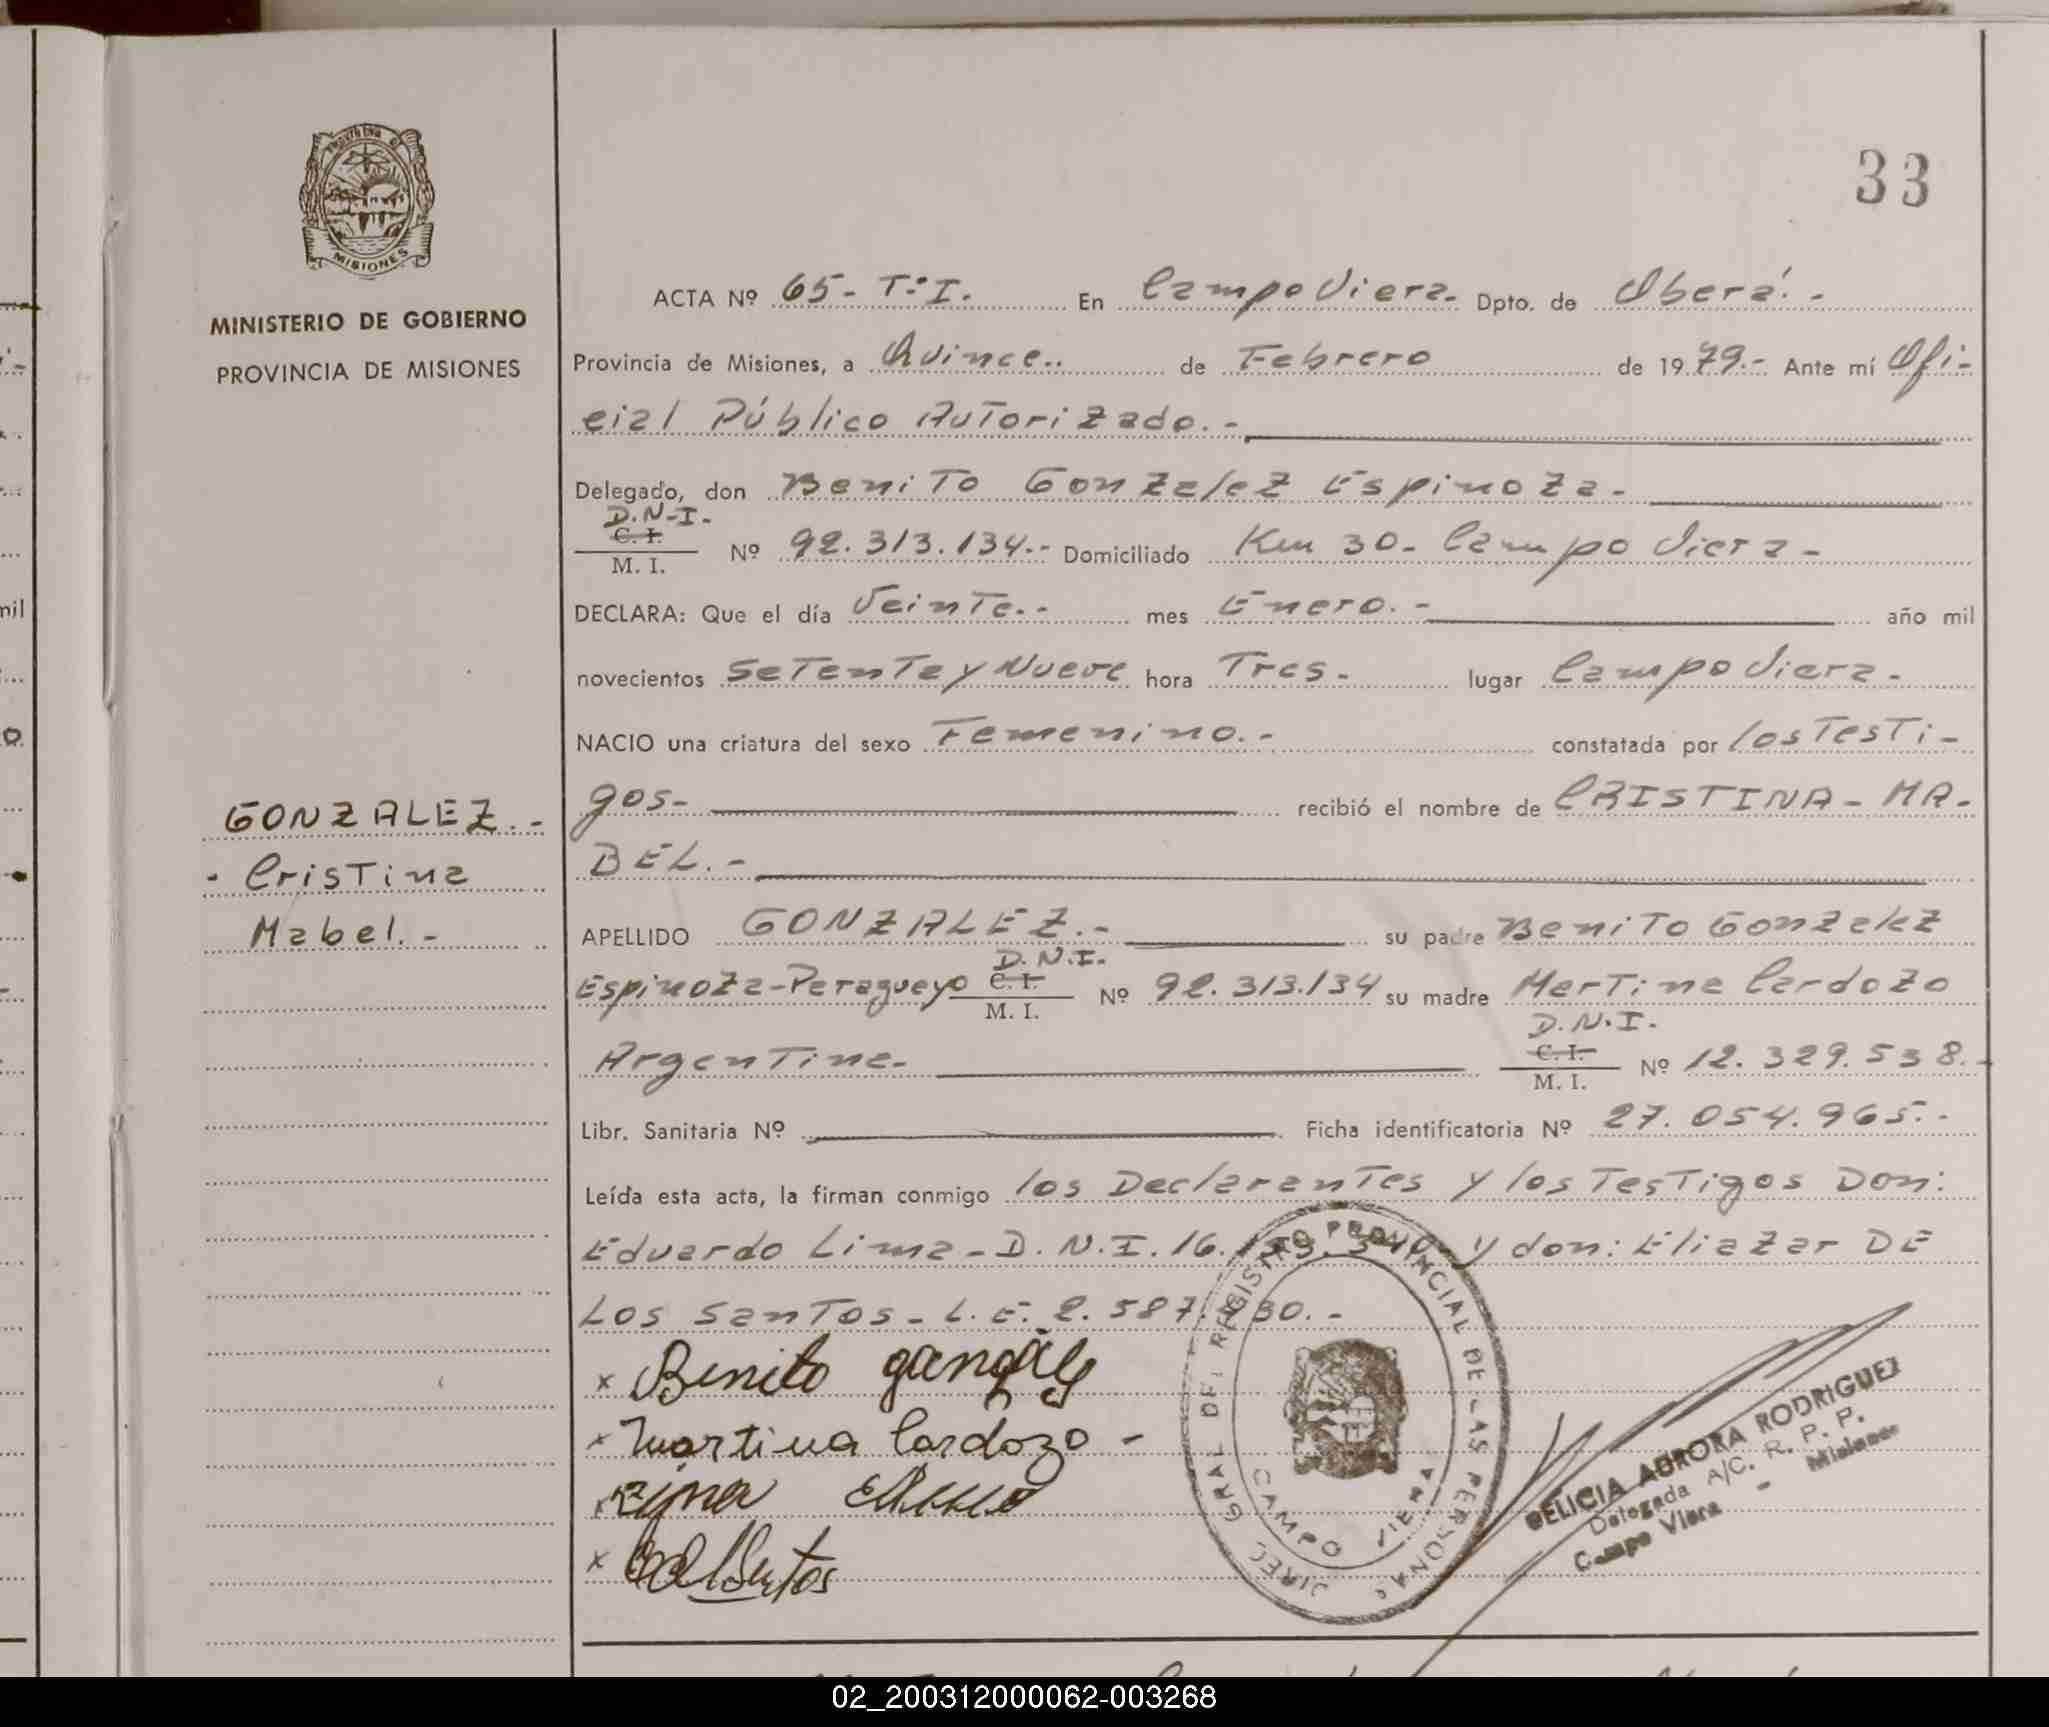 33
MINISTERIO DE GOBIERNO
PROVINCIA DE MISIONES
MISIONES
ACTA Nº 65.- Tº I. En Campo Viera.- Dpto. de Oberá.-
Provincia de Misiones, a Quince.. de Febrero de 1979.- Ante mí Ofi-
cial Público Autorizado.-
Delegado, don Benito Gonzalez Espinoza.-
D.N.I.- C. I. M. I. Nº 92.313.134.- Domiciliado Km 30- Campo Viera-
DECLARA: Que el día Veinte.- mes Enero.- año mil
novecientos Setenta y Nueve hora Tres.- lugar Campo Viera.-
NACIO una criatura del sexo Femenino.- constatada por los Testi-
gos- recibió el nombre de CRISTINA- MA-
BEL.-
GONZALEZ.-
- Cristina
Mabel.-
APELLIDO GONZALEZ.- su padre Benito Gonzalez
Espinoza-Paraguayo D.N.I. C. I. M. I. Nº 92.313.134 su madre Martina Cardozo
Argentina- D.N.I. C. I. M. I. Nº 12.329.538.-
Libr. Sanitaria Nº Ficha identificatoria Nº 27.054.965.-
Leída esta acta, la firman conmigo los Declarantes y los Testigos Don:
Eduardo Lima- D.N.I. 16. y don: Eliazar DE
LOS SANTOS- L.E. 2.587.
x Benito
x Martina Cardozo -
x Lima
x
DIREC GRAL DEL REGISTRO PROVINCIAL DE LAS PERSONAS
CAMPO VIERA
DELICIA AURORA RODRIGUEZ
Delegada A/C. R. P. P.
Campo Viera - Misiones
02_200312000062-003268